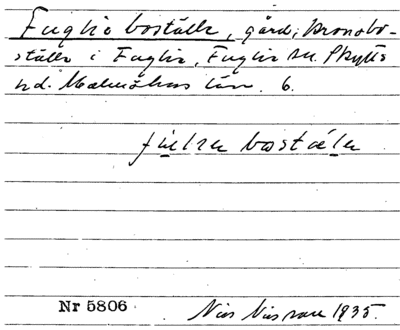 Fuglie boställe, gård; kronobo-
ställe i Fuglie, Fuglie sn. Skytts
hd. Malmöhus län. 6.
boställe
Nr 5806
Nils Nilsson 1935.